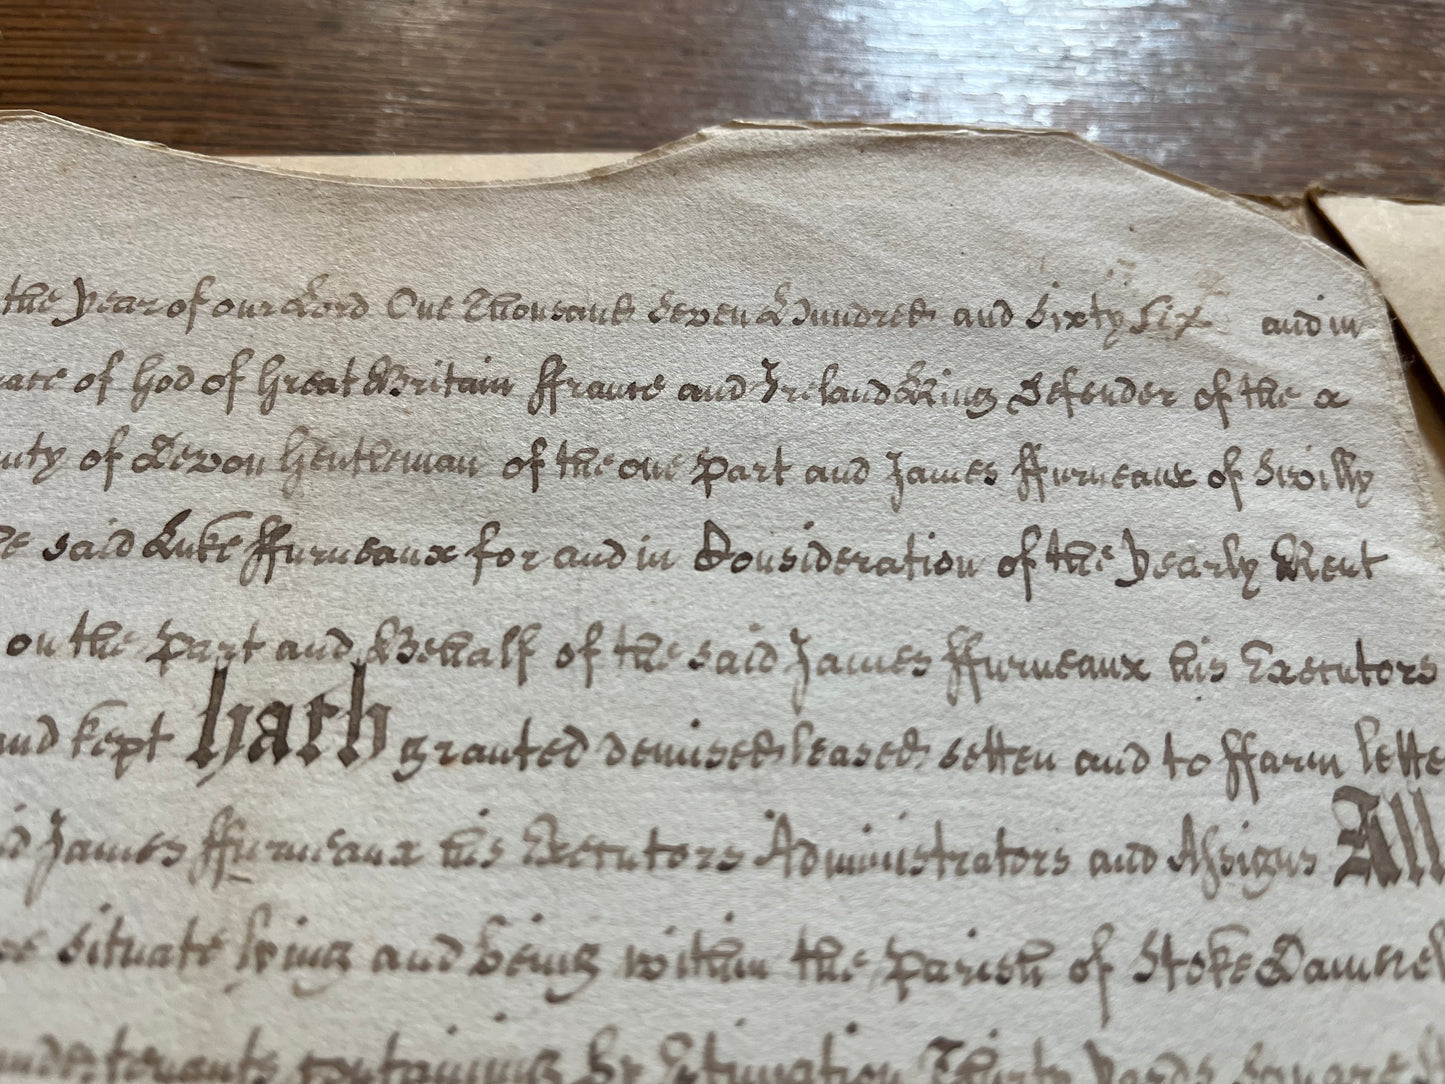 the Year of our Lord One Thousand Seven Hundred and Sixty Six and in
of God of Great Britain ffrance and Ireland King Defender of the
of Devon Gentleman of the one Part and James ffurneaux of Swilly
said Luke ffurneaux for and in Consideration of the Yearly Rent
on the Part and Behalf of the said James ffurneaux his Executors
and kept Hath granted demised leased setten and to ffarm lette
James ffurneaux his Executors Administrators and Assigns All
situate lying and being within the Parish of Stoke Damerel
undertenents containing by Estimation Thirty Yards Square